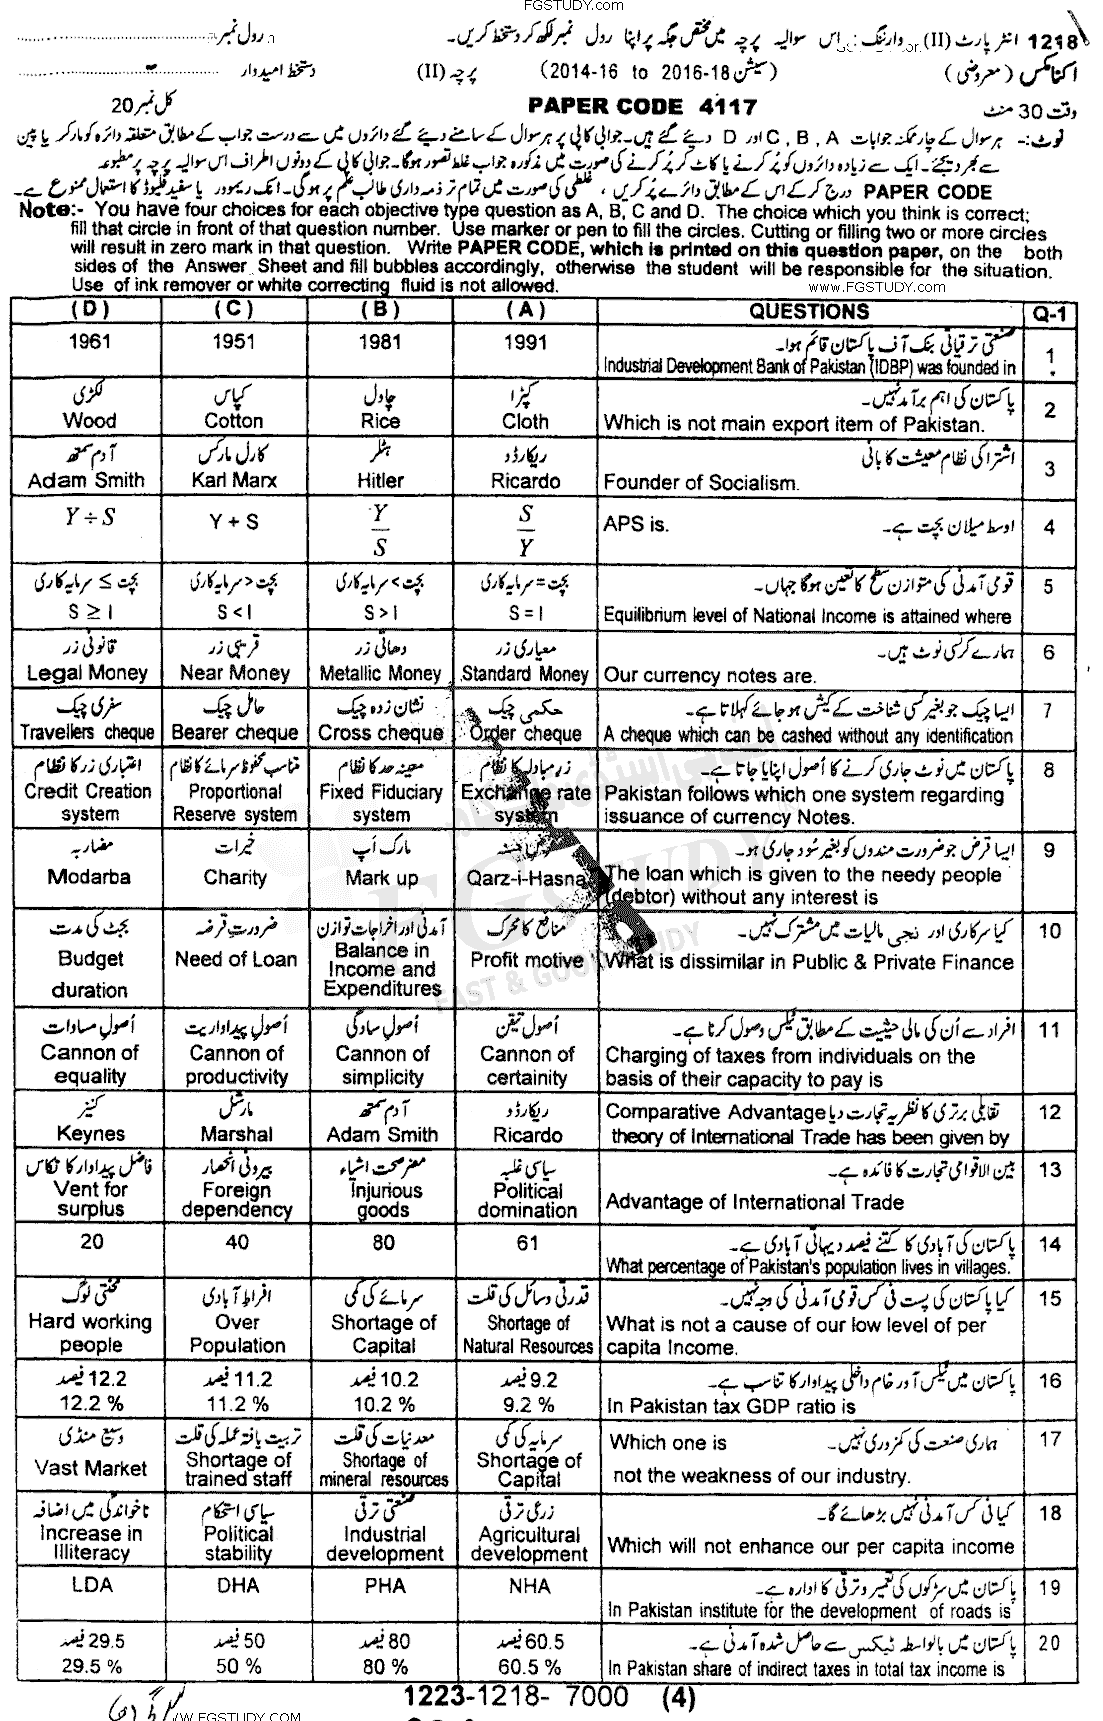 FGSTUDY.COM
1218 انٹر پارٹ (II) وارننگ:۔ اس سوالیہ پرچہ میں مختص جگہ پر اپنا رول نمبر لکھ کر دستخط کریں۔ رول نمبر
اکنامکس (معروضی) (سیشن 2014-16 to 2016-18) پرچہ (II) دستخط امیدوار
وقت 30 منٹ PAPER CODE 4117 کل نمبر 20
نوٹ:۔ ہر سوال کے چار ممکنہ جوابات A ، B ، C اور D دیئے گئے ہیں۔ جوابی کاپی پر ہر سوال کے سامنے دیئے گئے دائروں میں سے درست جواب کے مطابق متعلقہ دائرہ کو مارکر یا پین
سے بھر دیجئے۔ ایک سے زیادہ دائروں کو پُر کرنے یا کاٹ کر پُر کرنے کی صورت میں مذکورہ جواب غلط تصور ہوگا۔ جوابی کاپی کے دونوں اطراف اس سوالیہ پرچہ پر مطبوعہ
PAPER CODE درج کر کے اس کے مطابق دائرے پُر کریں، غلطی کی صورت میں تمام تر ذمہ داری طالب علم پر ہوگی۔ انک ریمور یا سفید فلیوڈ کا استعمال ممنوع ہے۔
Note:- You have four choices for each objective type question as A, B, C and D. The choice which you think is correct;
fill that circle in front of that question number. Use marker or pen to fill the circles. Cutting or filling two or more circles
will result in zero mark in that question. Write PAPER CODE, which is printed on this question paper, on the both
sides of the Answer Sheet and fill bubbles accordingly, otherwise the student will be responsible for the situation.
Use of ink remover or white correcting fluid is not allowed. www.FGSTUDY.com
(D) (C) (B) (A) QUESTIONS Q-1
1961 1951 1981 1991 صنعتی ترقیاتی بنک آف پاکستان قائم ہوا۔ 1
Industrial Development Bank of Pakistan (IDBP) was founded in
لکڑی کپاس چاول کپڑا پاکستان کی اہم برآمد نہیں۔ 2
Wood Cotton Rice Cloth Which is not main export item of Pakistan.
آدم سمتھ کارل مارکس ہٹلر ریکارڈو اشتراکی نظام معیشت کا بانی 3
Adam Smith Karl Marx Hitler Ricardo Founder of Socialism.
Y ÷ S Y + S Y/S S/Y APS is. اوسط میلان بچت ہے۔ 4
بچت ≥ سرمایہ کاری بچت < سرمایہ کاری بچت > سرمایہ کاری بچت = سرمایہ کاری قومی آمدنی کی متوازن سطح کا تعین ہوگا جہاں۔ 5
S ≥ I S < I S > I S = I Equilibrium level of National Income is attained where
قانونی زر قریبی زر دھاتی زر معیاری زر ہمارے کرنسی نوٹ ہیں۔ 6
Legal Money Near Money Metallic Money Standard Money Our currency notes are.
سفری چیک حامل چیک نشان زدہ چیک حکمی چیک ایسا چیک جو بغیر کسی شناخت کے کیش ہو جائے کہلاتا ہے۔ 7
Travellers cheque Bearer cheque Cross cheque Order cheque A cheque which can be cashed without any identification
اعتباری زر کا نظام متناسب محفوظ سرمائے کا نظام معینہ حد کا نظام زرمبادلہ کا نظام پاکستان میں نوٹ جاری کرنے کا اُصول اپنایا جاتا ہے۔ 8
Credit Creation Proportional Fixed Fiduciary Exchange rate Pakistan follows which one system regarding
system Reserve system system system issuance of currency Notes.
مضاربہ خیرات مارک اَپ ایسا قرض جو ضرورت مندوں کو بغیر سُود جاری ہو۔ 9
Modarba Charity Mark up Qarz-i-Hasna The loan which is given to the needy people
(debtor) without any interest is
بجٹ کی مدت ضرورتِ قرضہ آمدنی اور اخراجات توازن منافع کا محرک کیا سرکاری اور نجی مالیات میں مشترک نہیں۔ 10
Budget duration Need of Loan Balance in Income and Expenditures Profit motive What is dissimilar in Public & Private Finance
اُصولِ مساوات اُصولِ پیداواریت اُصولِ سادگی اُصولِ تیقن افراد سے اُن کی مالی حیثیت کے مطابق ٹیکس وصول کرنا ہے۔ 11
Cannon of Cannon of Cannon of Cannon of Charging of taxes from individuals on the
equality productivity simplicity certainity basis of their capacity to pay is
کینز مارشل آدم سمتھ ریکارڈو Comparative Advantage تقابلی برتری کا نظریہ تجارت دیا 12
Keynes Marshal Adam Smith Ricardo theory of International Trade has been given by
فاضل پیداوار کا نکاس بیرونی انحصار مضر صحت اشیاء سیاسی غلبہ بین الاقوامی تجارت کا فائدہ ہے۔ 13
Vent for Foreign Injurious Political Advantage of International Trade
surplus dependency goods domination
20 40 80 61 پاکستان کی آبادی کا کتنے فیصد دیہاتی آبادی ہے۔ 14
What percentage of Pakistan's population lives in villages.
محنتی لوگ افراطِ آبادی سرمائے کی کمی قدرتی وسائل کی قلت کیا پاکستان کی پست فی کس قومی آمدنی کی وجہ نہیں۔ 15
Hard working Over Shortage of Shortage of What is not a cause of our low level of per
people Population Capital Natural Resources capita Income.
12.2 فیصد 11.2 فیصد 10.2 فیصد 9.2 فیصد پاکستان میں ٹیکس اور خام داخلی پیداوار کا تناسب ہے۔ 16
12.2 % 11.2 % 10.2 % 9.2 % In Pakistan tax GDP ratio is
وسیع منڈی تربیت یافتہ عملہ کی قلت معدنیات کی قلت سرمایہ کی کمی Which one is ہماری صنعت کی کمزوری نہیں۔ 17
Vast Market Shortage of trained staff Shortage of mineral resources Shortage of Capital not the weakness of our industry.
ناخواندگی میں اضافہ سیاسی استحکام صنعتی ترقی زرعی ترقی کیا فی کس آمدنی نہیں بڑھائے گا۔ 18
Increase in Political Industrial Agricultural Which will not enhance our per capita income
Illiteracy stability development development
LDA DHA PHA NHA پاکستان میں سڑکوں کی تعمیر و ترقی کا ادارہ ہے۔ 19
In Pakistan institute for the development of roads is
29.5 فیصد 50 فیصد 80 فیصد 60.5 فیصد پاکستان میں بالواسطہ ٹیکس سے حاصل شدہ آمدنی ہے۔ 20
29.5 % 50 % 80 % 60.5 % In Pakistan share of indirect taxes in total tax income is
1223-1218- 7000 (4)
WW.FGSTUDY.COM